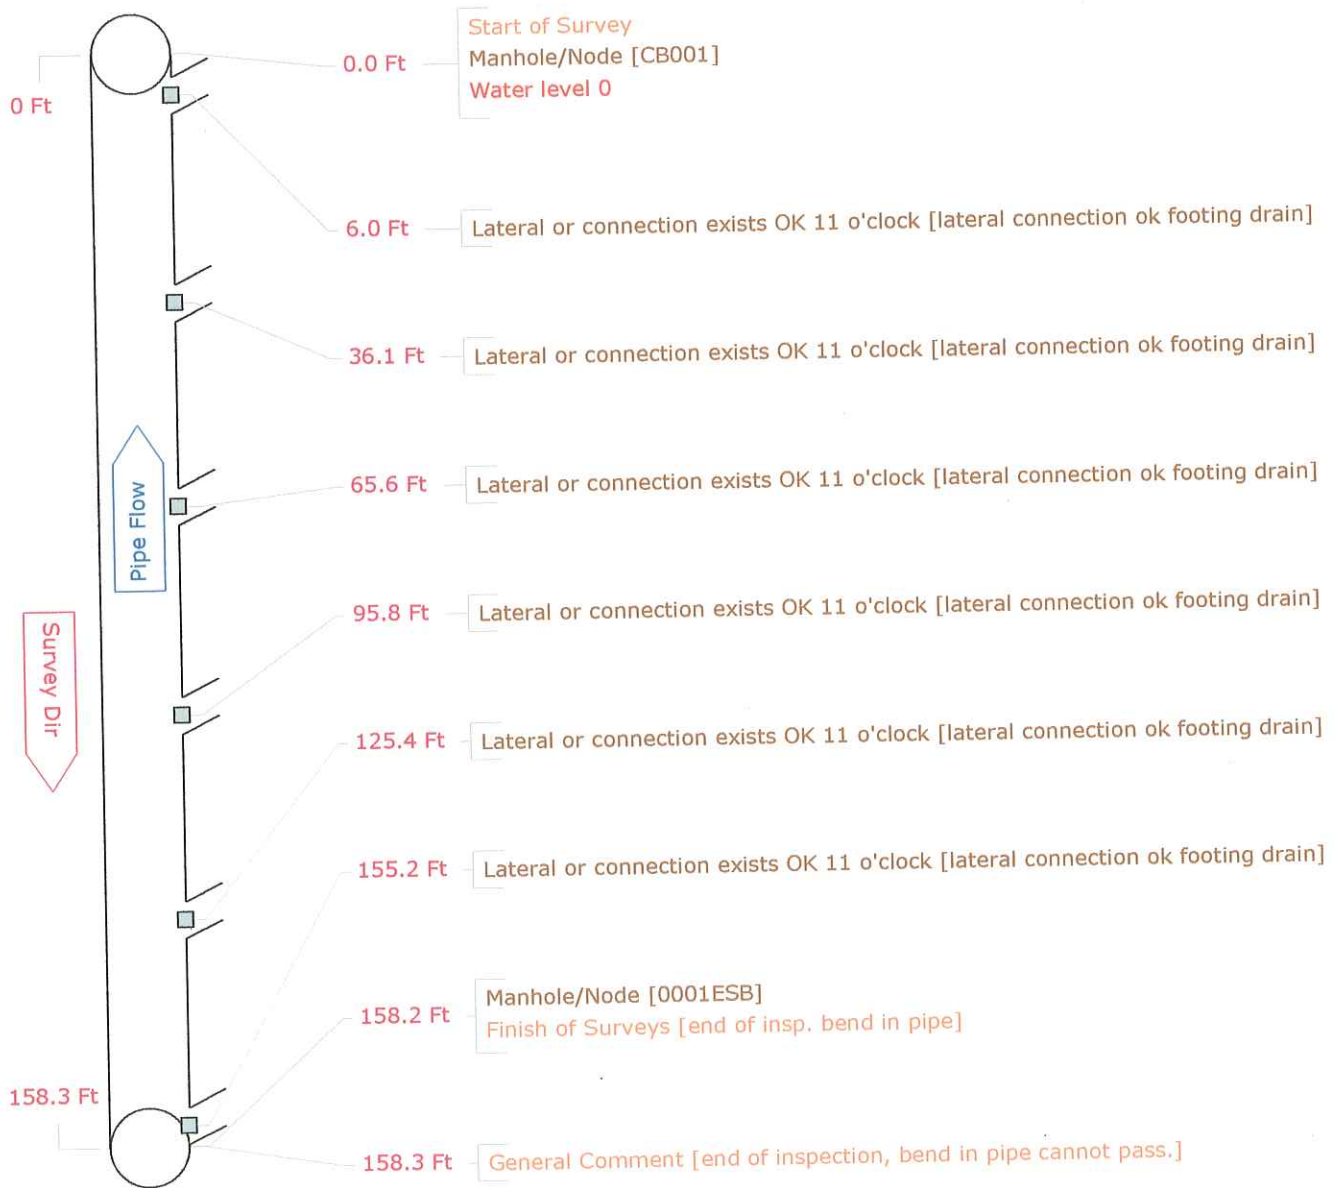 Start of Survey
0.0 Ft
Manhole/Node [CB001]
Water level 0
0 Ft
6.0 Ft
Lateral or connection exists OK 11 o'clock [lateral connection ok footing drain]
36.1 Ft
Lateral or connection exists OK 11 o'clock [lateral connection ok footing drain]
65.6 Ft
Lateral or connection exists OK 11 o'clock [lateral connection ok footing drain]
Pipe Flow
95.8 Ft
Lateral or connection exists OK 11 o'clock [lateral connection ok footing drain]
Survey Dir
125.4 Ft
Lateral or connection exists OK 11 o'clock [lateral connection ok footing drain]
155.2 Ft
Lateral or connection exists OK 11 o'clock [lateral connection ok footing drain]
158.2 Ft
Manhole/Node [0001ESB]
Finish of Surveys [end of insp. bend in pipe]
158.3 Ft
158.3 Ft
General Comment [end of inspection, bend in pipe cannot pass.]